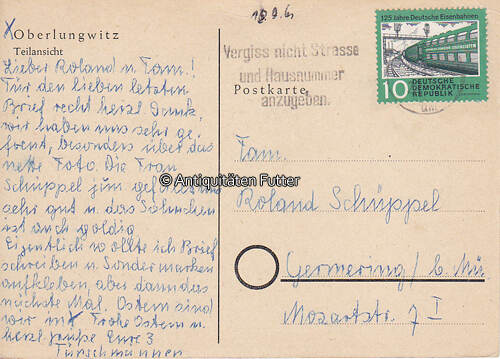 Oberlungwitz
Teilansicht
Lieber Roland u. Fam.!
Für den lieben letzten
Brief recht herzl. Dank,
wir haben uns sehr ge-
freut, besonders über das
nette Foto. Die Frau
Schüppel jun. gefällt uns
sehr gut u. das Söhnchen
ist auch goldig
Eigentlich wollte ich Brief
schreiben u. Sondermarken
aufkleben, aber dann das
nächste Mal. Ostern sind
wir in Frohe Ostern u.
herzl. Grüße Eure 3
Türschmannen
Vergiss nicht Strasse
und Hausnummer
anzugeben.
Postkarte
125 Jahre Deutsche Eisenbahnen
10 DEUTSCHE
DEMOKRATISCHE
REPUBLIK
© Antiquitäten Futter
Fam.
Roland Schüppel
Germering / b. Mü
Mozartstr. 7 I